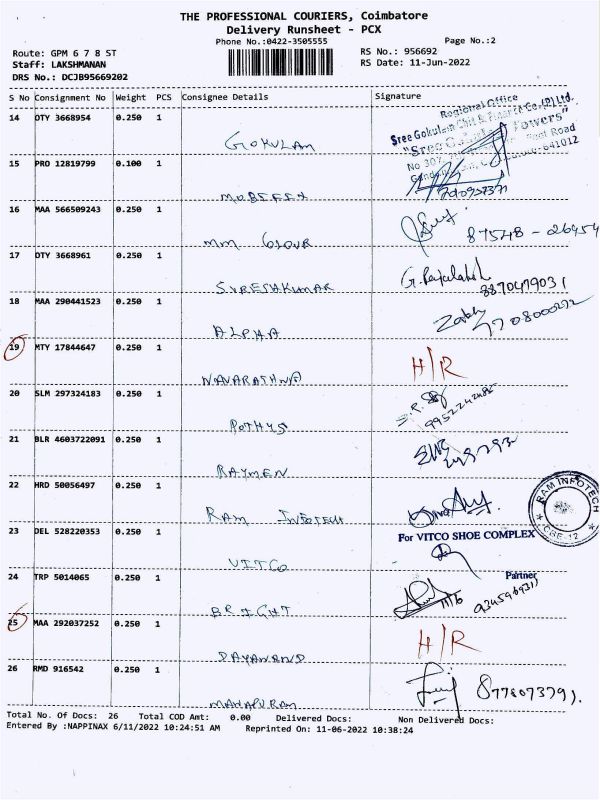 THE PROFESSIONAL COURIERS, Coimbatore
Delivery Runsheet - PCX
Phone No.:0422-3505555
Page No.:2
Route: GPM 6 7 8 ST
RS No.: 956692
Staff: LAKSHMANAN
RS Date: 11-Jun-2022
DRS No.: DCJB95669202
S No Consignment No Weight PCS Consignee Details Signature
14 OTY 3668954 0.250 1
GOKULAM
Regional Office
Sree Gokulam Chit & Finance Co.(P)Ltd.
15 PRO 12819799 0.100 1
16 MAA 566509243 0.250 1
MM COLOUR
87548 - 26454
17 OTY 3668961 0.250 1
SURESHKUMAR
8870479031
18 MAA 290441523 0.250 1
ALPHA
19 MTY 17844647 0.250 1 H/R
NAVARATHNA
20 SLM 297324183 0.250 1
POTHYS
21 BLR 4603722091 0.250 1
RAYMEN
22 HRD 50056497 0.250 1
RAM INFOTECH
RAM INFOTECH
CBE-12
23 DEL 528220353 0.250 1 For VITCO SHOE COMPLEX
VITCO
Partner
24 TRP 5014065 0.250 1
BRIGHT
25 MAA 292037252 0.250 1 H/R
DAYANAND
26 RMD 916542 0.250 1
MANAPURAM
Total No. Of Docs: 26 Total COD Amt: 0.00 Delivered Docs: Non Delivered Docs:
Entered By :NAPPINAX 6/11/2022 10:24:51 AM Reprinted On: 11-06-2022 10:38:24